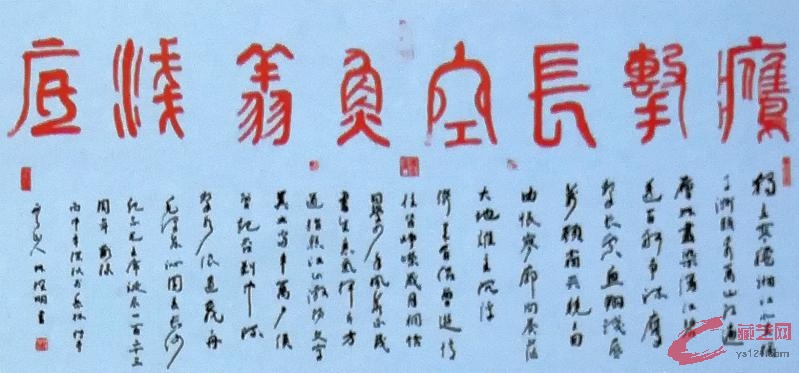 鷹擊長空魚翔淺底
獨立寒秋湘江北去橘
子洲頭看萬山紅遍
層林盡染漫江碧
透百舸爭流鷹
擊長空魚翔淺底
萬類霜天競自
由悵寥廓問蒼茫
大地誰主沉浮
攜來百侶曾遊憶
往昔崢嶸歲月稠恰
同學少年風華正茂
書生意氣揮斥方
遒指點江山激揚文字
糞土當年萬戶侯
曾記否到中流
擊水浪遏飛舟
毛澤東沁園春長沙
紀念毛主席誕辰一百二十三
周年
丙申年
書
藏艺网